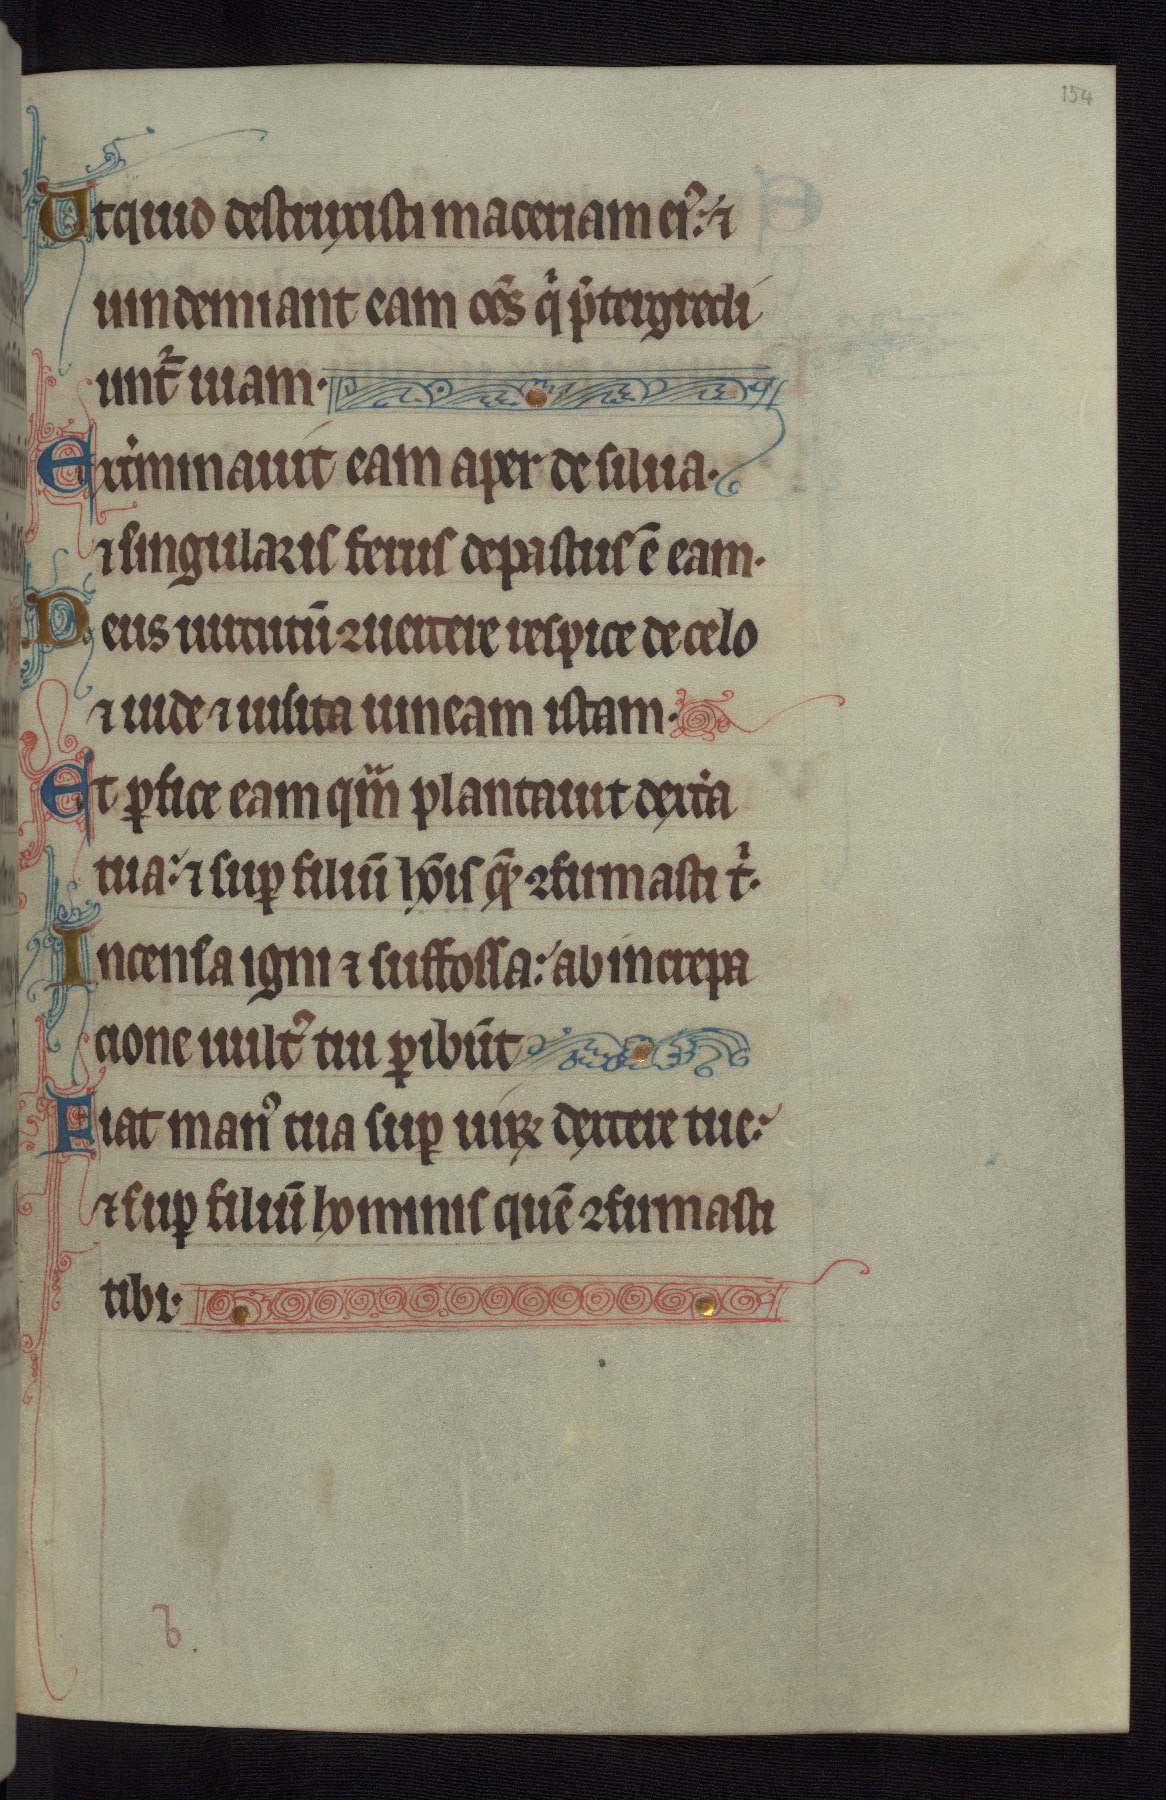 154
Vt quid destruxisti maceriam eiꝰ: ⁊
uindemiant eam oēs qⁱ p̄tergredi
unt᷑ uiam·
Ext͛minauit eam aper de silua·
⁊ singularis ferus depastus ē eam·
Deus uirtutū ꝯuertere respice de celo
⁊ uide ⁊ uisita uineam istam·
Et ꝑfice eam qm̄ plantauit dext͛a
tua: ⁊ suꝑ filiū hoīs quē ꝯfirmasti tⁱ·
Incensa igni ⁊ suffossa: ab increpa
cione uultꝰ tui ꝑibūt
Fiat manꝰ tua suꝑ uiꝝ dextere tue:
⁊ suꝑ filiū hominis quē ꝯfirmasti
tibi·
b